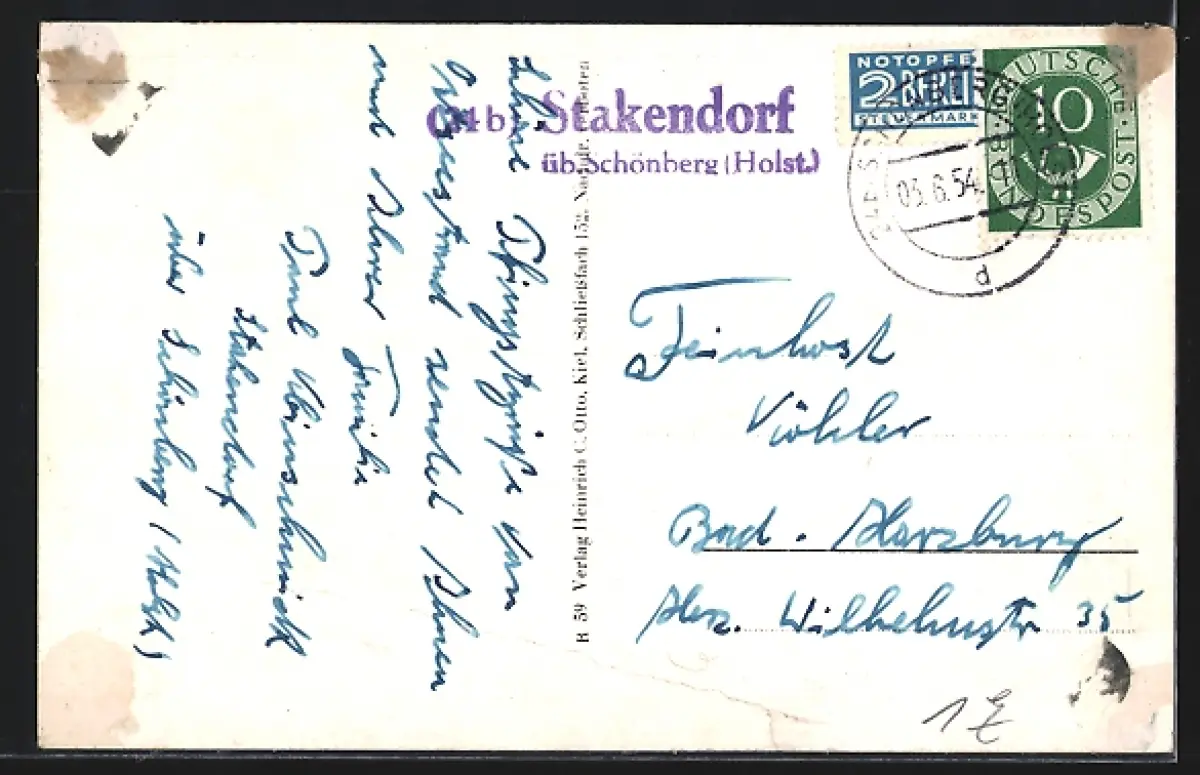 (24b) Stakendorf
üb. Schönberg (Holst.)
NOTOPFER
2 BERLIN
STEUERMARKE
DEUTSCHE
10
BUNDESPOST
03.6.54
d
Pfingstgrüße von
Ostseestrand sendet Ihnen
und Ihrer Familie
Paul
Stakendorf
über Schönberg (Holst)
R 59 Verlag Heinrich C. Otto, Kiel, Schließfach 152. Nachdr. verboten
Feinkost
Köhler
Bad. Harzburg
Herz. Wilhelmstr 35
1 E